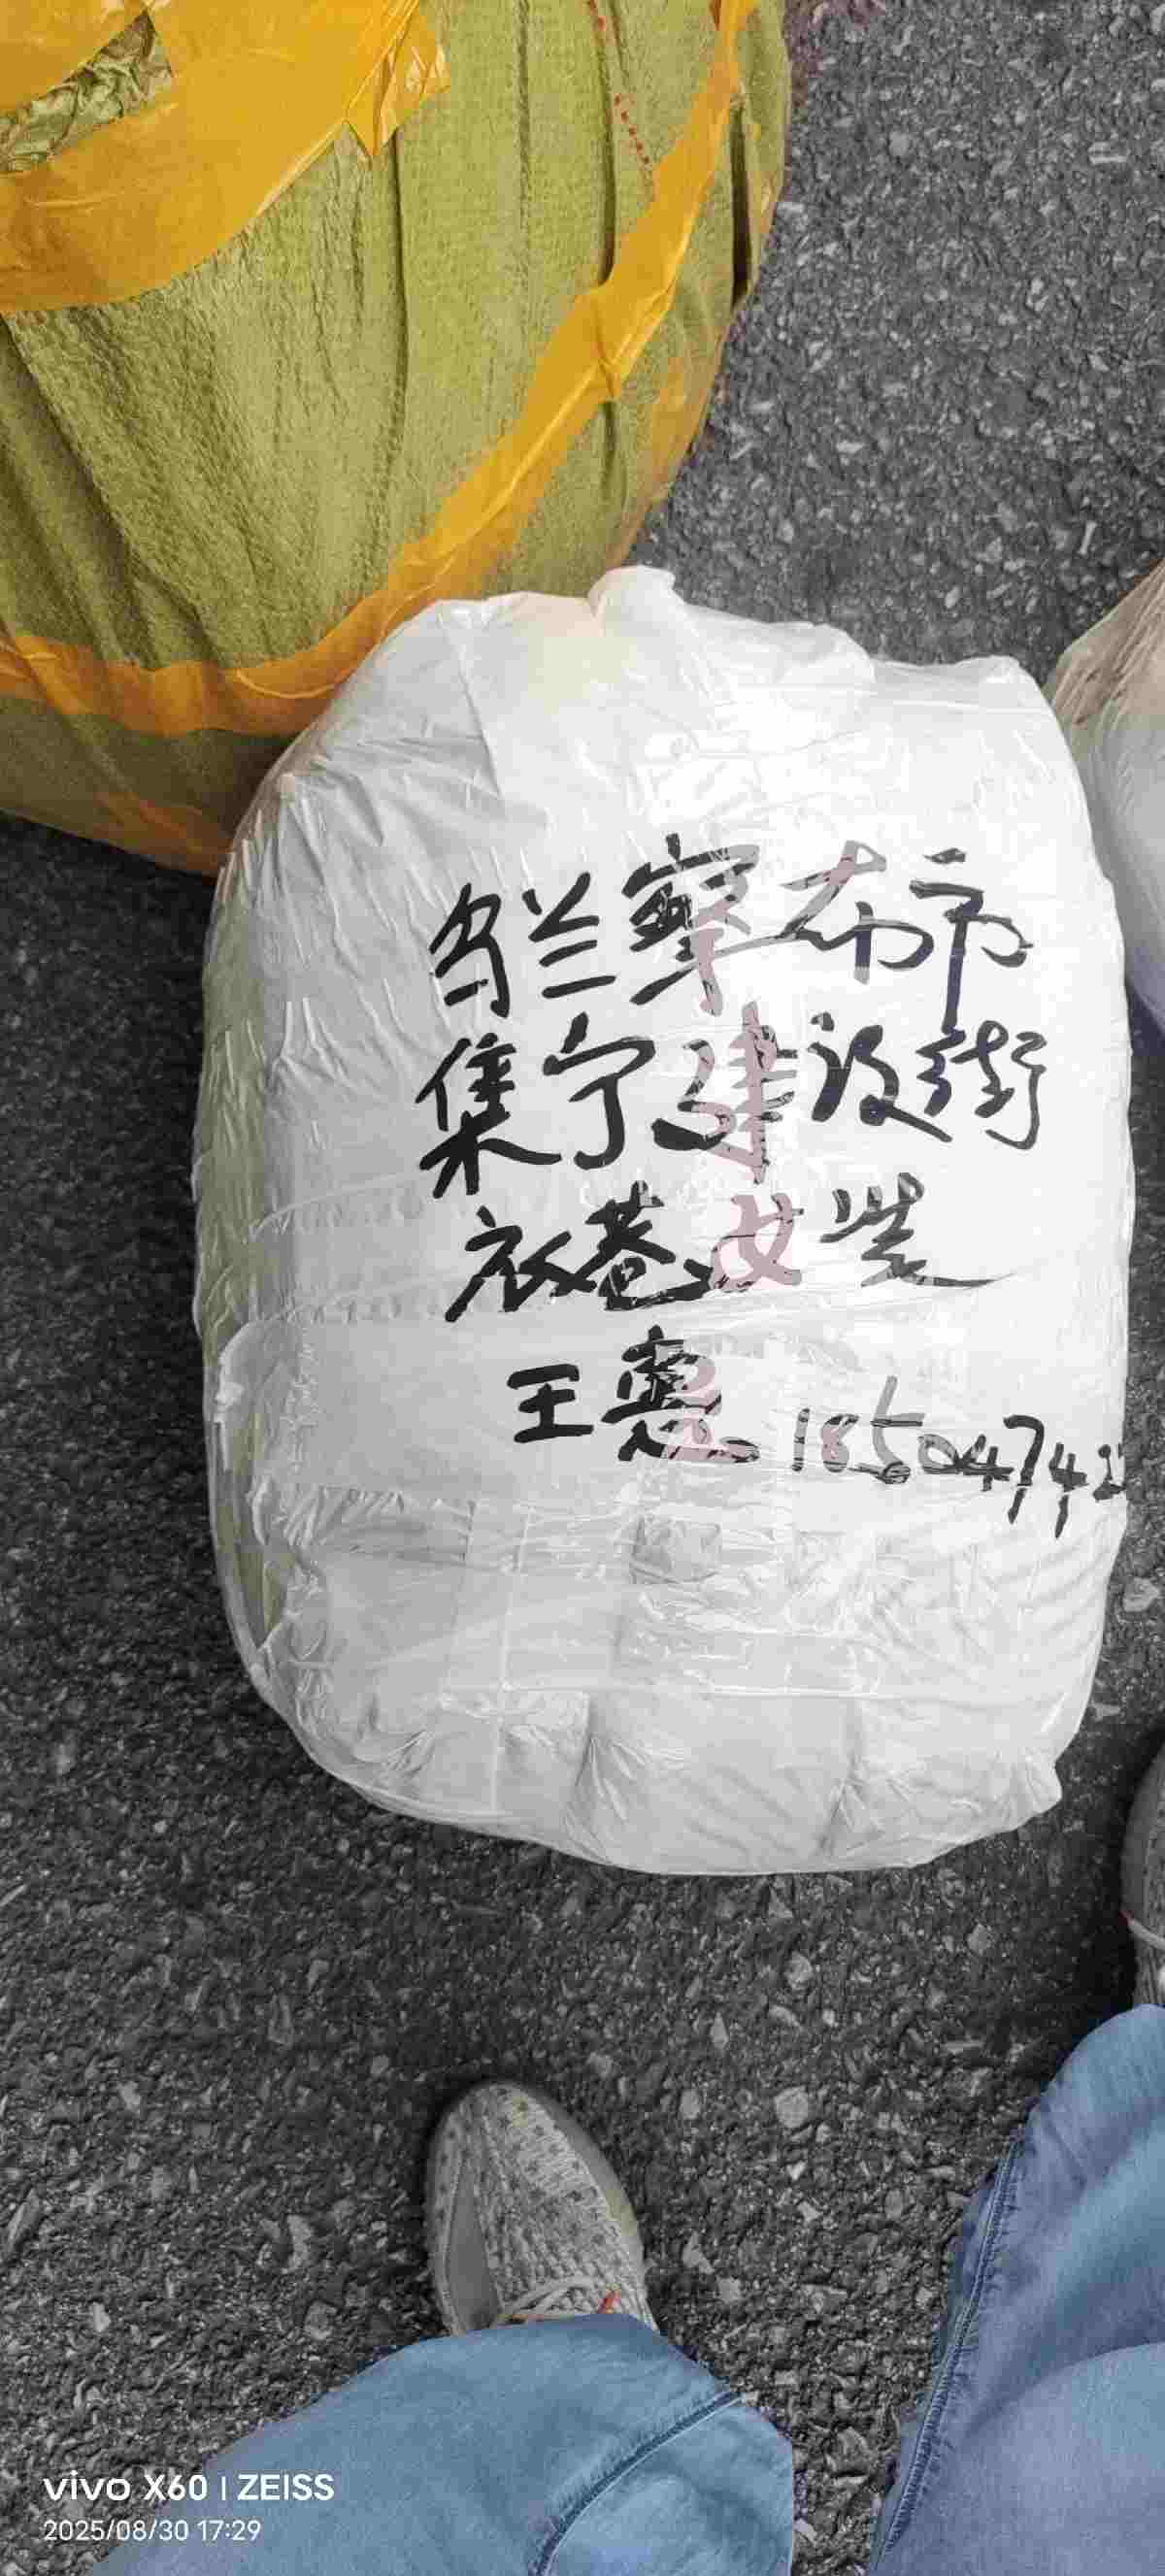 乌兰察布市
集宁建设街
衣巷女装
王惠 18504742
vivo X60 | ZEISS
2025/08/30 17:29